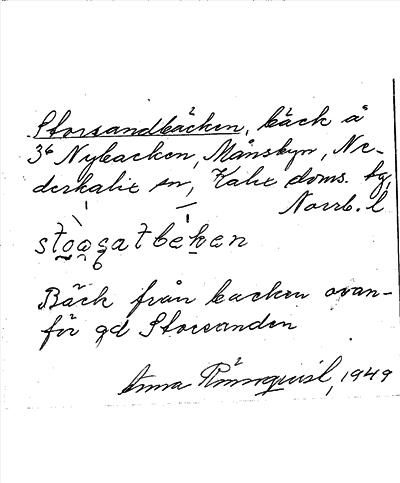 Storsandbäcken, bäck å
3⁶ Nybacken, Månsbyn, Ne-
derkalix sn, Kalix doms. tg,
Norrb. l
Bäck från backen ovan-
för gd Storsanden
Anna Rönnquist, 1949